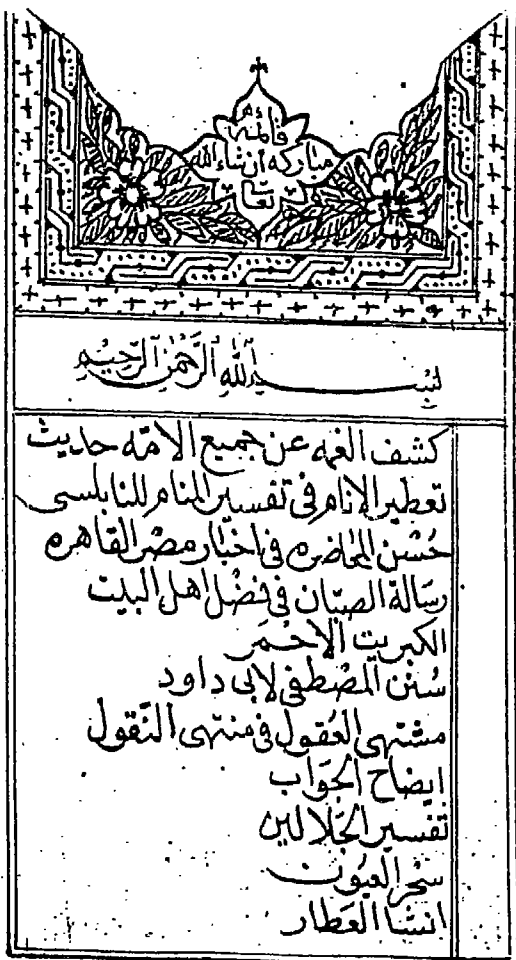 قائمة
مباركه أن شاء الله
تعا
بسم الله الرحمن الرحيم
كشف الغمه عن جميع الامّه حديث
تعطير الانام فى تفسير المنام للنابلسى
حُسْن المحاضره فى اخبار مصر القاهره
رسالة الصبّان فى فضل اهل البيت
الكبريت الاحمر
سُنن المصطفى لابى داود
مشتهى العُقول فى منتهى النّقول
ايضاح الجَواب
تفسير الجَلالين
سحر العيون
انشا العَطار